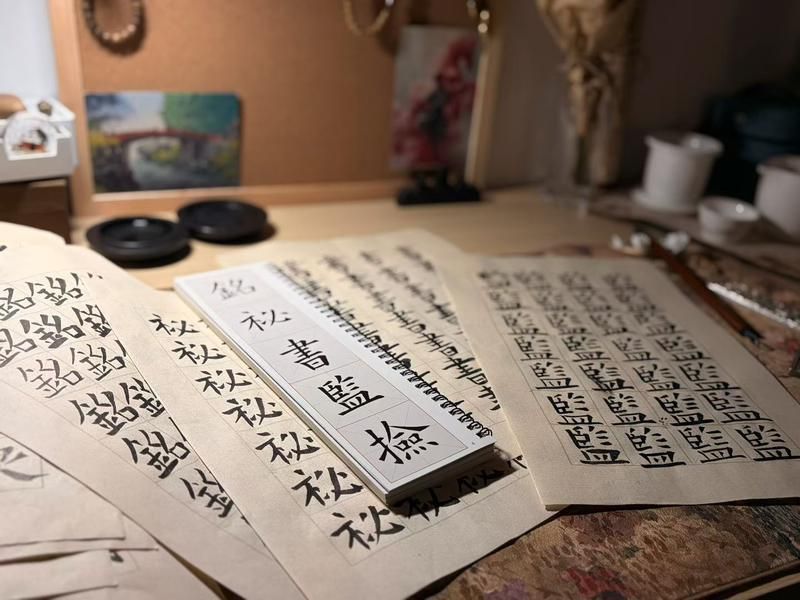 銘
秘
書
監
撿
銘銘
銘銘銘
銘銘
銘銘
銘
銘
秘
秘
秘
秘
秘
秘
秘秘秘
書書書
書書書
書書
書
監監監監
監監監監
監監監監
監監監監
監監監監
監監監監
監監監監